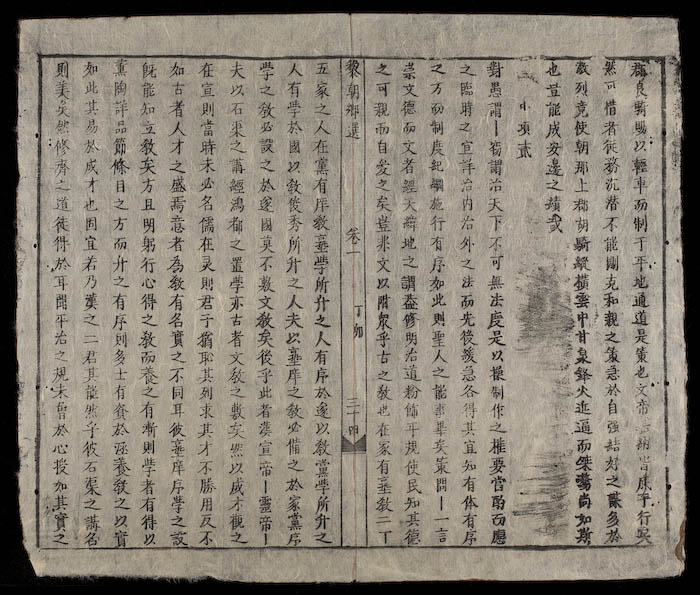 郡良騎賜以輕車而制于平地通道是策也文帝納皆庶乎行矣
然可惜者從務沉潜不能剛克和親之策急於自強結好之謀多於
列竟使朝那上郡胡騎縱橫雲中甘泉鋒火迩逼而桀驁尚如斯
也豈能成安邊之績哉
小項貳
對愚謂丨窃謂治天下不可無法度是以操制作之權要當酌而應
之臨時之宜詳治内治外之法而先後緩急各得其宜知有体有序
之方而制度紀綱施行有序如此則聖人之能事畢矣策問丨丨言
崇文德而文者經天緯地之謂盖修明治道粉飾平規使民知其德
之可親而自愛之矣豈非文以附衆乎古之教也在家有塾教二丁
黎朝鄉選 卷一 丁卯 三十四
五家之人在黨有庠教塾學所升之人有序於遂以教黨學所升之
人有學於國以教俊秀所升之人夫以塾庠之教必備之於家黨序
學之教必設之於遂國莫不敷文教矣後乎此者漢宣帝丨靈帝丨
夫以石渠之講經鴻都之置學亦古者文教之敷矣然以成才觀之
在宣則當時未必名儒在灵則君子猶恥其列求其才不勝用及不
如古者人才之盛焉意者為教有名實之不同耳彼塾庠序學之設
既能知立教矣方且明躬行心得之教而養之有漸則學者有得以
薰陶詳品節條目之方而升之有序則多士有餐於涵養教之以實
如此其易於成才也固宜若乃漢之二君其誰然乎彼石渠之講名
則美矣然修齊之道徒得於耳聞平治之規未曾於心授如其實之